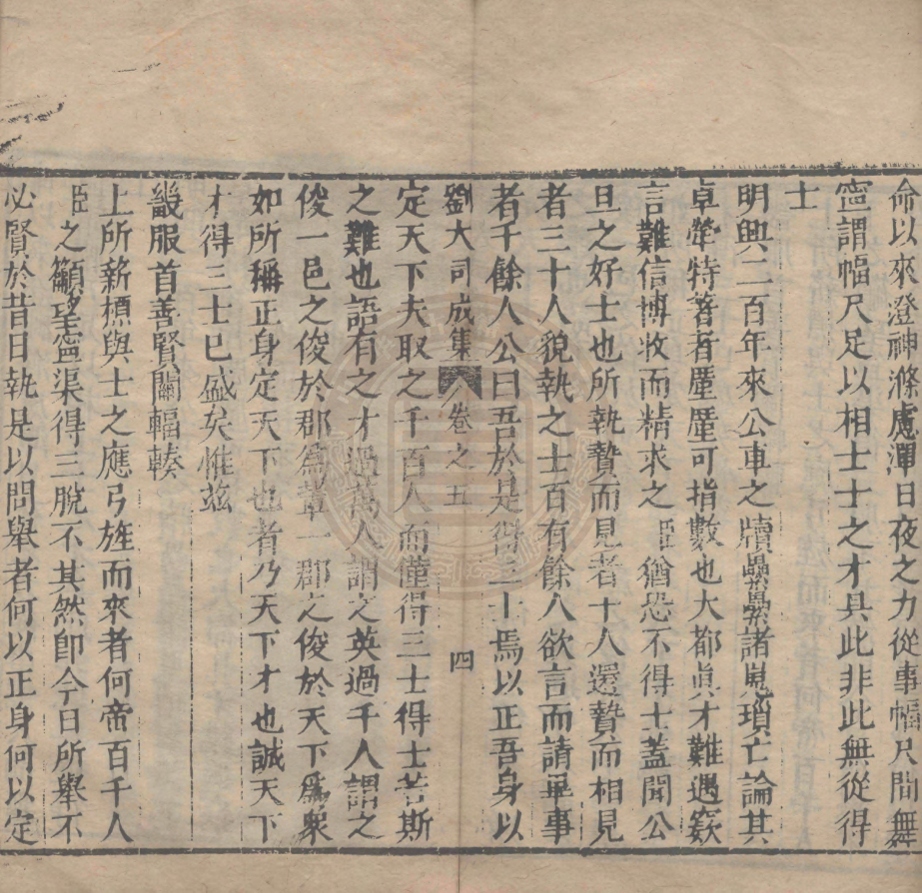 命以來澄神滌慮渾日夜之力從事幅尺間無
寧謂幅尺足以相士士之才具此非此無從得
士
明興二百年來公車之牘纍纍諸嵬瑣亡論其
卓犖特著者厪厪可指數也大都眞才難遇窽
言難信博收而精求之臣猶恐不得士蓋聞公
旦之好士也所執贄而見者十人還贄而相見
者三十人貌執之士百有餘人欲言而請畢事
者千餘人公曰吾於是得三士焉以正吾身以
劉大司成集 卷之五 四
定天下夫取之千百人而僅得三士得士若斯
之難也語有之才過萬人謂之英過千人謂之
俊一邑之俊於郡爲羣一郡之俊於天下爲衆
如所稱正身定天下也者乃天下才也誠天下
才得三士已盛矣惟兹
畿服首善賢關輻輳
上所薪槱與士之應弓旌而來者何啻百千人
臣之籲望寧渠得三脫不其然卽今日所舉不
必賢於昔日執是以問舉者何以正身何以定